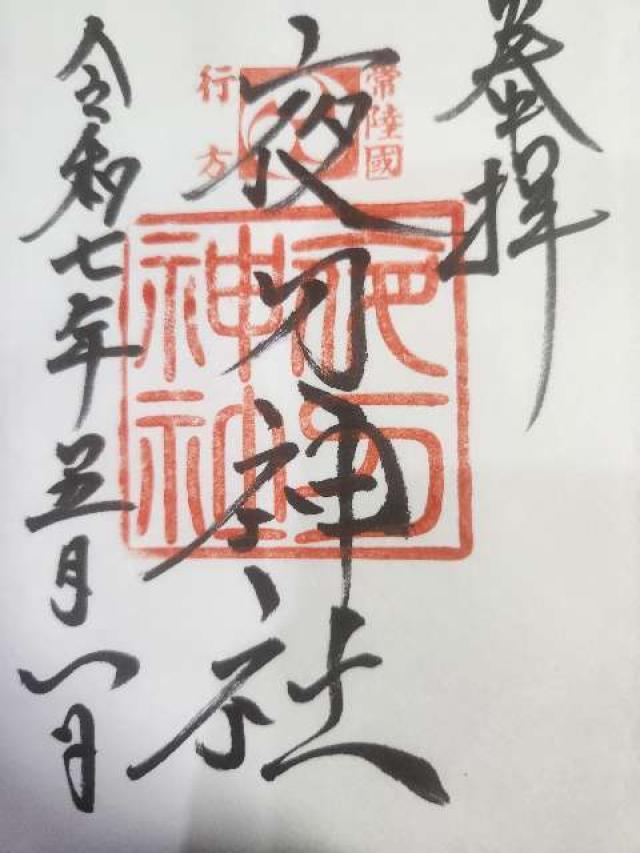 奉拝
常陸國
行方
夜刀神社
夜刀
神社
令和七年五月八日